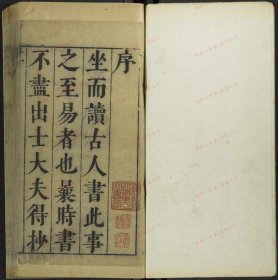 序
坐而讀古人書此事
之至易者也曩時書
不盡出士大夫得抄